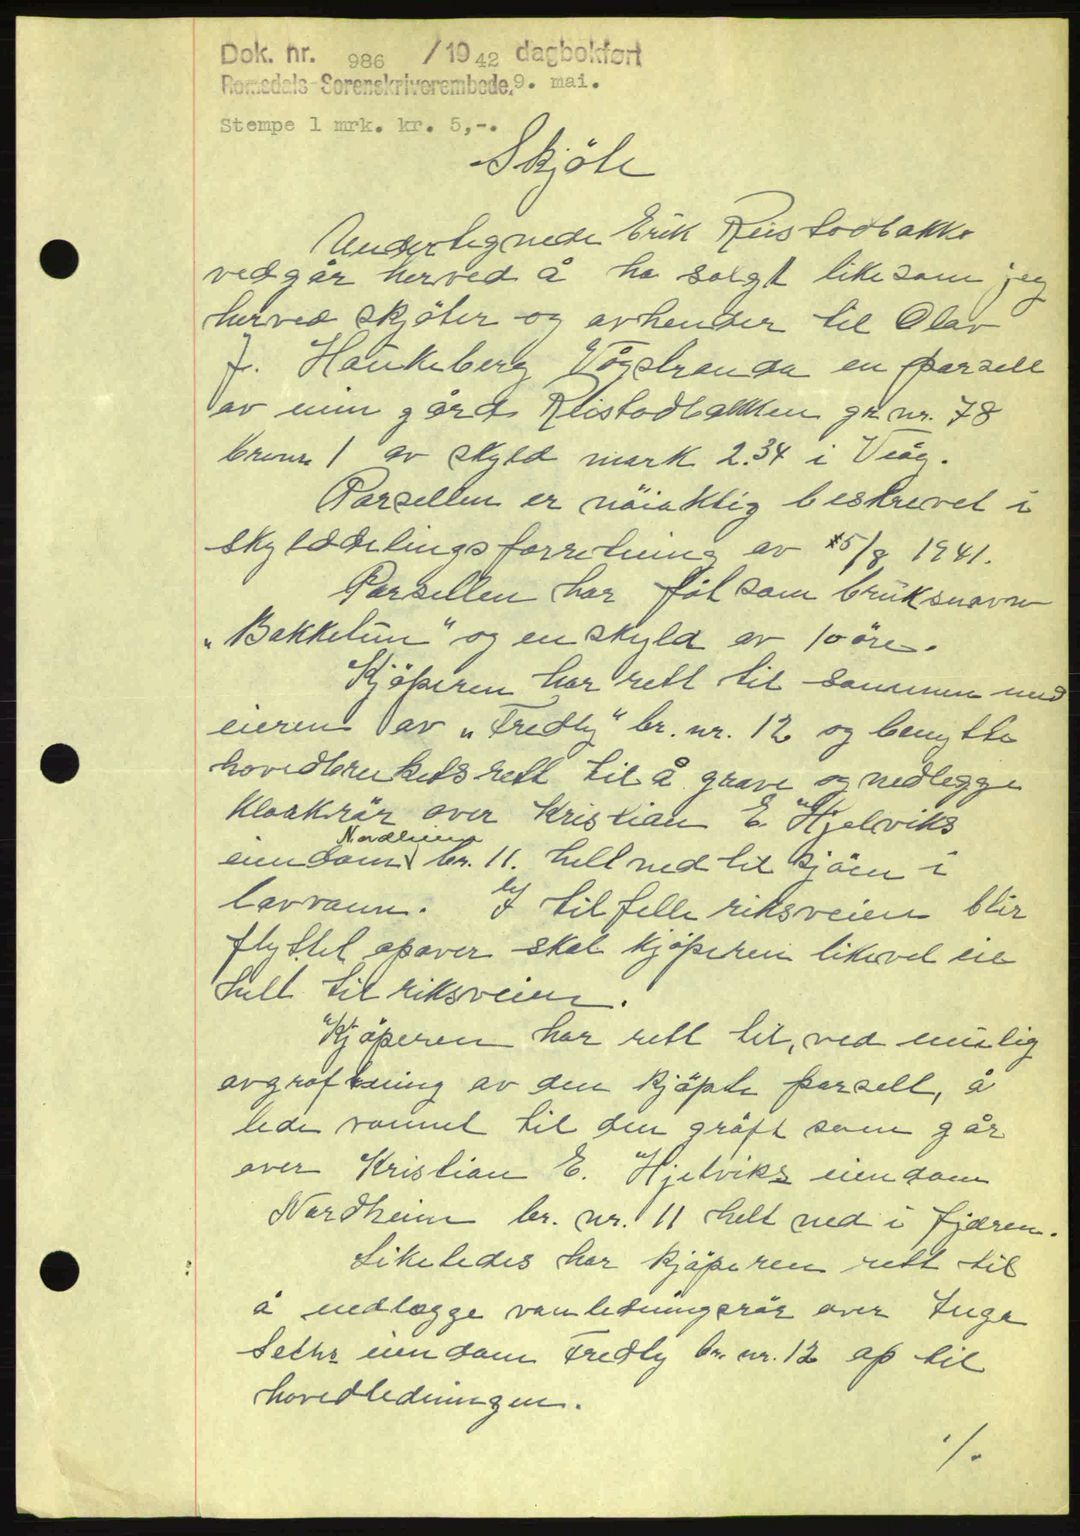 Dok. nr. 986 / 1942 dagbokført
Romsdals Sorenskriverembede, 9. mai.
Stempe 1 mrk. kr. 5,-.
Skjöte
Undertegnede Erik Reistadbakke
vedgår herved å ha solgt likesom jeg
herved skjöter og avhender til Olav
J. Haukeberg Vågstranda en parsell
av min gård Reistadbakken gr. nr. 78
br. nr. 1 av skyld mark 2.34 i Veöy.
Parsellen er nöiaktig beskrevet i
skylddelingsforretning av 5/8 1941.
Parsellen har fåt som bruksnavn
„Bakketun" og en skyld av 10 öre.
Kjöperen har rett til sammen med
eieren av „Fredly" br. nr. 12 og benytte
hovedbrukets rett til å grave og nedlegge
kloakrör over Kristian E. Hjelviks
eiendom Nordheim br. 11. helt ned til sjöen i
lavvann. I tilfelle riksveien blir
flyttet opover skal kjöperen likevel eie
helt til riksveien.
Kjöperen har rett til, ved mulig
avgröftning av den kjöpte parsell, å
lede vannet til den gröft som går
over Kristian E. Hjelviks eiendom
Nordheim br. nr. 11 helt ned i fjæren.
Likeledes har kjöperen rett til
å nedlægge vanledningsrör over Inga
Sethr eiendom Fredly br. nr. 12 op til
hovedledningen.
./.